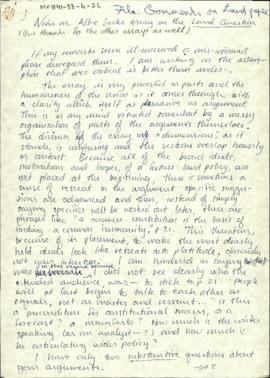 MCH91-33-4-25
File: Comments on Land paper
Notes on Albie Sachs essay on the Land Question
(But thanks for the other essays as well).
If my remarks seem ill-conceived or mis-informed
please disregard them. I am writing on the assum-
ption that over critical is better than under-.
The essay is very powerful in parts and the
humaneness of the vision as it comes through, with
a clarity which itself is persuasive as argument.
This is in my mind vitiated somewhat by a messy
organization of parts of the arguments themselves.
The division of the essay into "dimensions", as it
stands, is confusing and the sections overlap heavily
in content. Because all of the broad ideals,
motivations and hopes, of a future land policy are
not placed at the beginning, there is sometimes a
sense of retreat in the argument: specific sugges-
tions are advanced and then, instead of simply
saying specifics will be worked out later, there are
phrases like "a common constitution is the basis of
finding a common humanity," p 21. This threatens,
because of its placement, to make the most dearly
held ideals look like retreats into platitude, obviously
not your intention. I am hindered in saying
were I did not see clearly who the
intended audience was — to stick to p 21: People
will at last begin to talk to each other as
equals, not as master and servant..." is this
a precondition for constitutional success, or a
forecast? a manifesto? How much is the writer
speaking (as an analyst—?) and how much is
he articulating wider policy?
I have only two substantive questions about
your arguments.